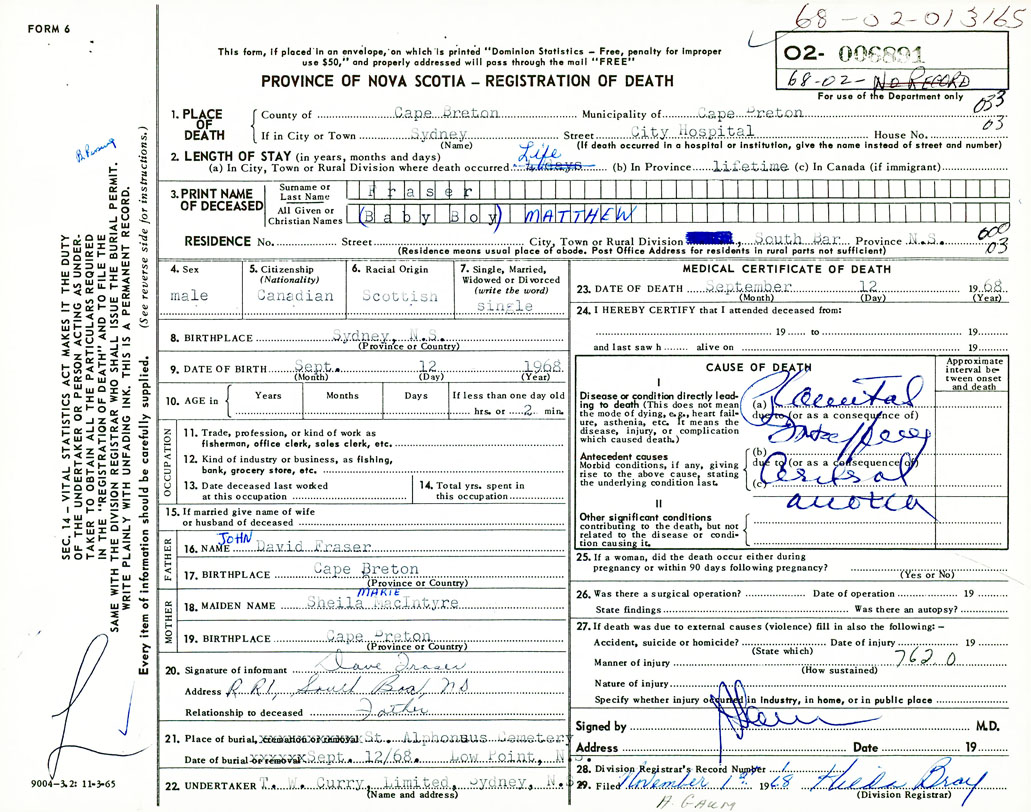 FORM 6
68-02-013165
O2- 006891
68-02- NO RECORD
For use of the Department only
This form, if placed in an envelope, on which is printed "Dominion Statistics – Free, penalty for improper
use $50," and properly addressed will pass through the mail "FREE"
PROVINCE OF NOVA SCOTIA – REGISTRATION OF DEATH
033
03
1. PLACE OF DEATH
County of Cape Breton Municipality of Cape Breton
If in City or Town Sydney Street City Hospital House No.
(Name) (If death occurred in a hospital or institution, give the name instead of street and number)
2. LENGTH OF STAY (in years, months and days)
(a) In City, Town or Rural Division where death occurred Life (b) In Province lifetime (c) In Canada (if immigrant)
3. PRINT NAME OF DECEASED
Surname or Last Name Fraser
All Given or Christian Names (Baby Boy) MATTHEW
600
03
RESIDENCE No. Street City, Town or Rural Division , South Bar, Province N.S.
(Residence means usual place of abode. Post Office Address for residents in rural parts not sufficient)
4. Sex
male
5. Citizenship
(Nationality)
Canadian
6. Racial Origin
Scottish
7. Single, Married,
Widowed or Divorced
(write the word)
single
8. BIRTHPLACE Sydney, N.S.
(Province or Country)
9. DATE OF BIRTH Sept. 12 1968
(Month) (Day) (Year)
10. AGE in
Years Months Days If less than one day old
hrs. or 2 min.
OCCUPATION
11. Trade, profession, or kind of work as
fisherman, office clerk, sales clerk, etc.
12. Kind of industry or business, as fishing,
bank, grocery store, etc.
13. Date deceased last worked
at this occupation
14. Total yrs. spent in
this occupation
15. If married give name of wife
or husband of deceased
FATHER
JOHN
16. NAME David Fraser
17. BIRTHPLACE Cape Breton
(Province or Country)
MOTHER
MARIE
18. MAIDEN NAME Sheila MacIntyre
19. BIRTHPLACE Cape Breton
(Province or Country)
20. Signature of informant Dave Fraser
Address R.R1, South Boat, NS
Relationship to deceased Father
21. Place of burial, cremation or removal St. Alphonsus Cemetery
Date of burial or removal Sept. 12/68. Low Point, N.S.
22. UNDERTAKER T. W. Curry, Limited, Sydney, N.S.
(Name and address)
MEDICAL CERTIFICATE OF DEATH
23. DATE OF DEATH September 12 1968
(Month) (Day) (Year)
24. I HEREBY CERTIFY that I attended deceased from:
19 to 19
and last saw h alive on 19
CAUSE OF DEATH
Approximate
interval be-
tween onset
and death
I
Disease or condition directly lead-
ing to death (This does not mean
the mode of dying, e.g., heart fail-
ure, asthenia, etc. It means the
disease, injury, or complication
which caused death.)
(a)
due to (or as a consequence of)
Antecedent causes
Morbid conditions, if any, giving
rise to the above cause, stating
the underlying condition last.
(b)
due to (or as a consequence of)
(c)
II
Other significant conditions
contributing to the death, but not
related to the disease or condi-
tion causing it.
25. If a woman, did the death occur either during
pregnancy or within 90 days following pregnancy?
(Yes or No)
26. Was there a surgical operation? Date of operation 19
State findings Was there an autopsy?
27. If death was due to external causes (violence) fill in also the following: –
Accident, suicide or homicide? Date of injury 19
(State which)
Manner of injury 762.0
(How sustained)
Nature of injury
Specify whether injury occurred in Industry, in home, or in public place
Signed by M.D.
Address Date 19
28. Division Registrar's Record Number
29. Filed November 1st 1968 Hilda Bray
(Division Registrar)
SEC. 14 – VITAL STATISTICS ACT MAKES IT THE DUTY
OF THE UNDERTAKER OR PERSON ACTING AS UNDER-
TAKER TO OBTAIN ALL THE PARTICULARS REQUIRED
IN THE "REGISTRATION OF DEATH" AND TO FILE THE
SAME WITH THE DIVISION REGISTRAR WHO SHALL ISSUE THE BURIAL PERMIT.
WRITE PLAINLY WITH UNFADING INK. THIS IS A PERMANENT RECORD.
Every item of information should be carefully supplied. (See reverse side for instructions.)
9004-3.2: 11-3-65